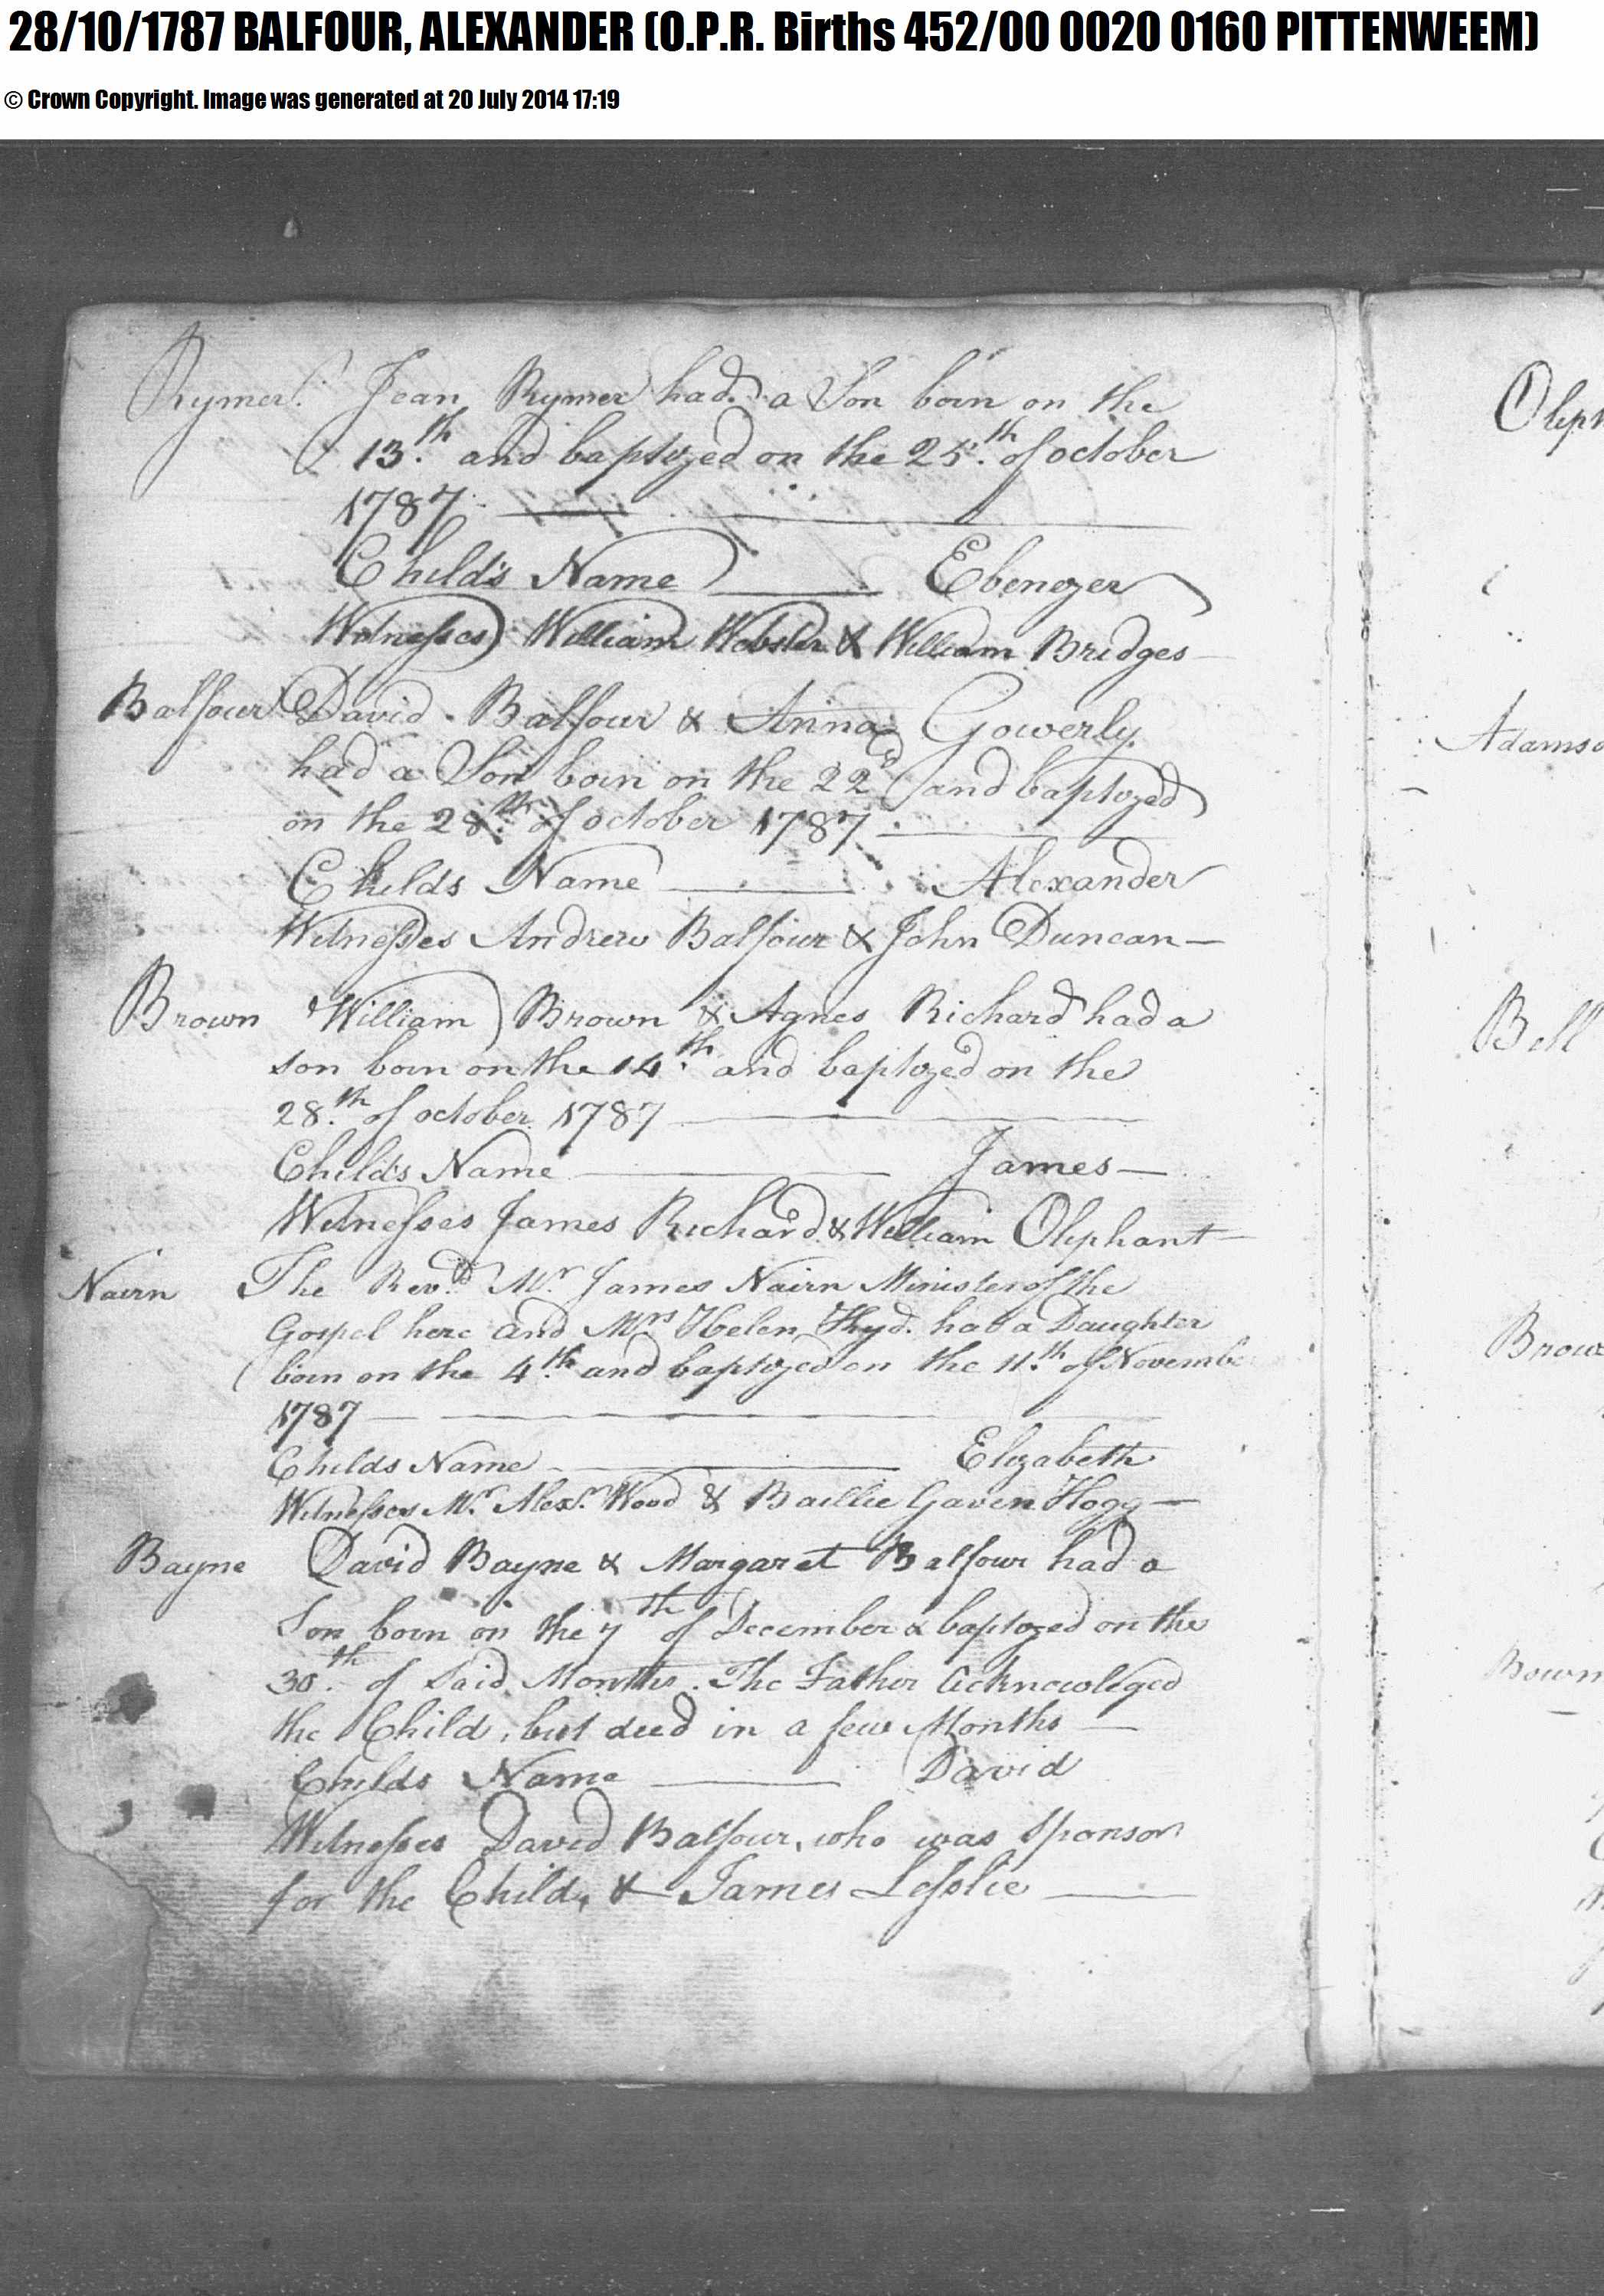 28/10/1787 BALFOUR, ALEXANDER (O.P.R. Births 452/00 0020 0160 PITTENWEEM)
© Crown Copyright. Image was generated at 20 July 2014 17:19
Rymer. Jean Rymer had a Son born on the
13.th and baptized on the 25.th of october
1787
Child's Name Ebenezer
Witnesses William Webster & William Bridges
Balfour David Balfour & Anna Gowerly
had a Son born on the 22d and baptized
on the 28.th of october 1787
Childs Name Alexander
Witnesses Andrew Balfour & John Duncan
Brown William Brown & Agnes Richard had a
son born on the 14.th and baptized on the
28.th of october 1787
Child's Name James
Witnesses James Richard & William Oliphant
Nairn The Revd. Mr. James Nairn Minister of the
Gospel here and Mrs Helen had a Daughter
born on the 4.th and baptized on the 11.th of Novembe
1787
Childs Name Elizabeth
Witnesses Mr. Alexr. Wood & Baillie Gaven Hogg
Bayne David Bayne & Margaret Balfour had a
Son born on the 7th of December & baptized on the
30.th of Said Months. The Father Acknowleged
the Child, but died in a few Months
Childs Name David
Witnesses David Balfour, who was Sponsor
for the Child, & James Lesslie
Oliph
Adamso
Bell
Brow
Bown